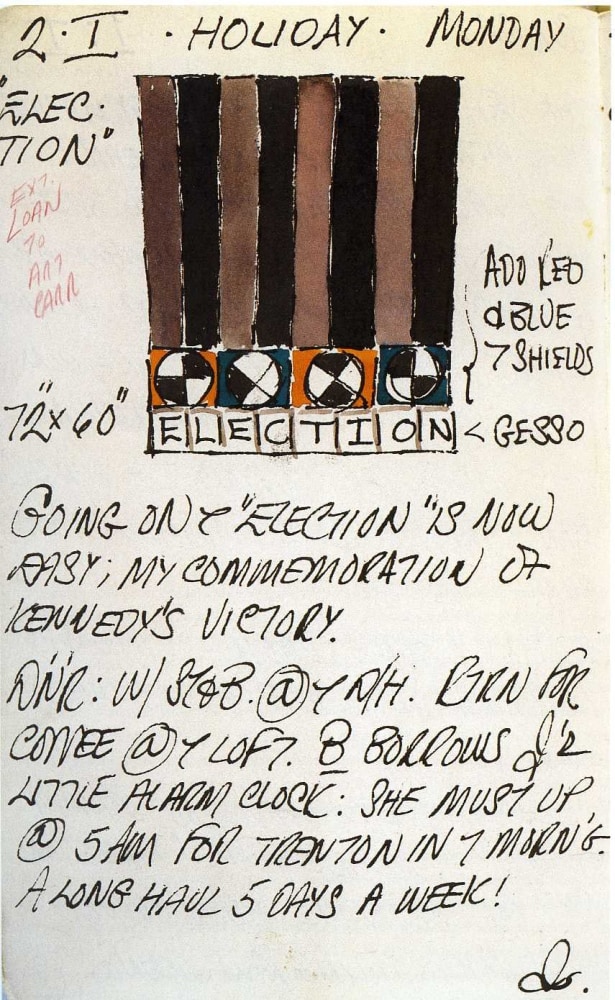 2·I · HOLIDAY · MONDAY
"ELEC·
TION"
EXT.
LOAN
TO
ART
CARR
ADD RED
& BLUE
7 SHIELDS
72" X 60"
ELECTION
< GESSO
GOING ON "ELECTION" IS NOW
EASY; MY COMMEMORATION OF
KENNEDY'S VICTORY.
DN'R: W/ @ RTRN FOR
COFFEE @ Y LOFT. B BORROWS
LITTLE ALARM CLOCK: SHE MUST UP
@ 5 AM FOR TRENTON IN 7 MORN'G.
A LONG HAUL 5 DAYS A WEEK!